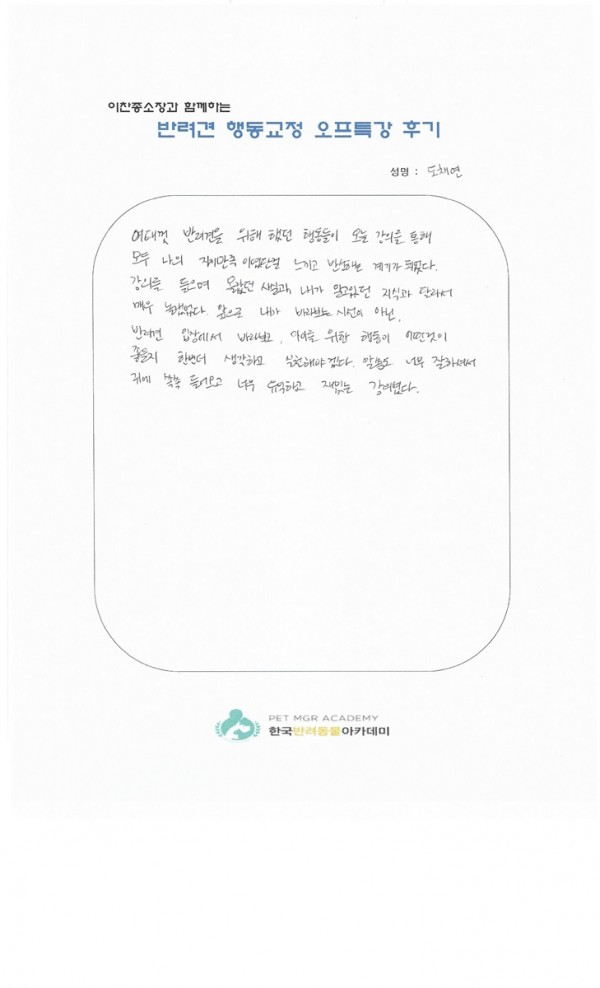 이찬종소장과 함께하는
반려견 행동교정 오프특강 후기
성명 : 도채연
여태껏 반려견을 위해 했던 행동들이 오늘 강의를 통해
모두 나의 자기만족 이였단걸 느끼고 반성하는 계기가 되었다.
강의를 들으며 몰랐던 사실과, 내가 알고있던 지식과 달라서
매우 놀랐었다. 앞으로 내가 바라보는 시선이 아닌,
반려견 입장에서 바라보고, 아이를 위한 행동이 어떤것이
좋을지 한번더 생각하고 실천해야 겠다. 말씀도 너무 잘하셔서
귀에 쏙쏙 들어오고 너무 유익하고 재밌는 강의였다.
PET MGR ACADEMY
한국반려동물아카데미